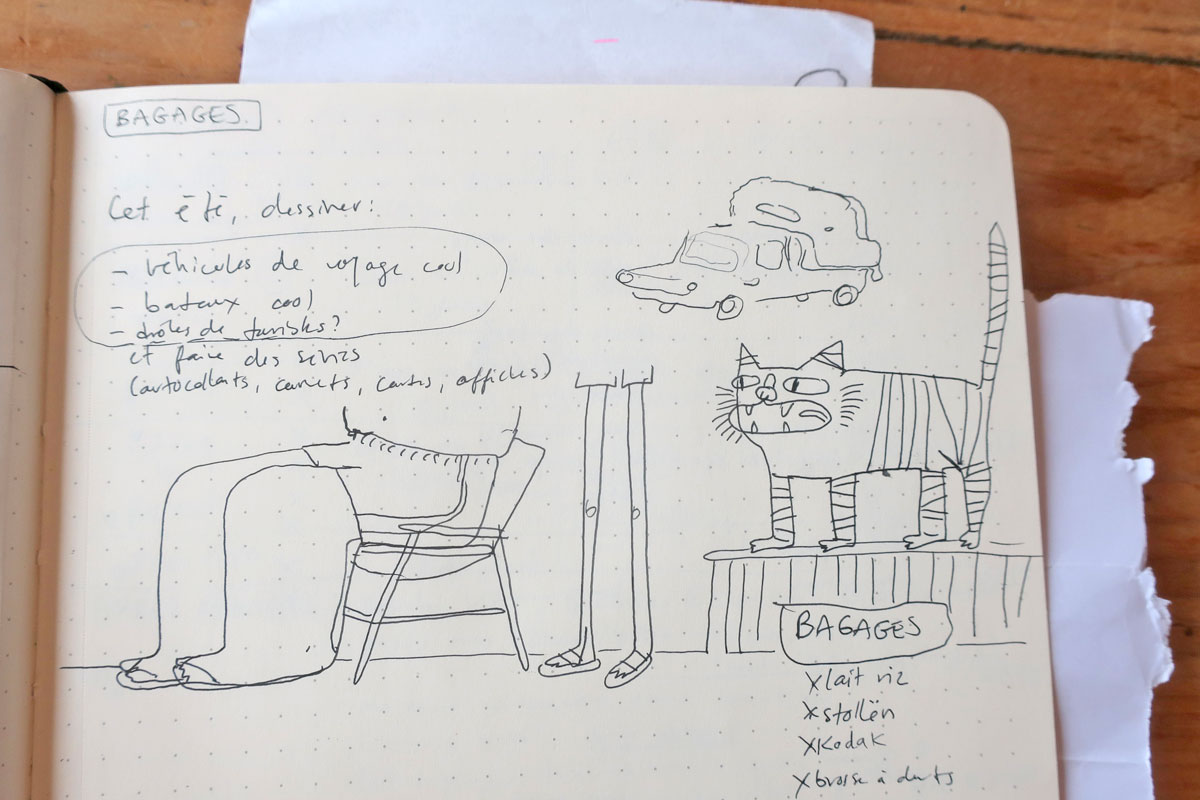 BAGAGES
Cet été, dessiner:
- véhicules de voyage cool
- bateaux cool
- drôles de
et faire des séries
(autocollants, carnets, cartes, affiches)
BAGAGES
x lait riz
x stollën
x Kodak
x brosse à dents